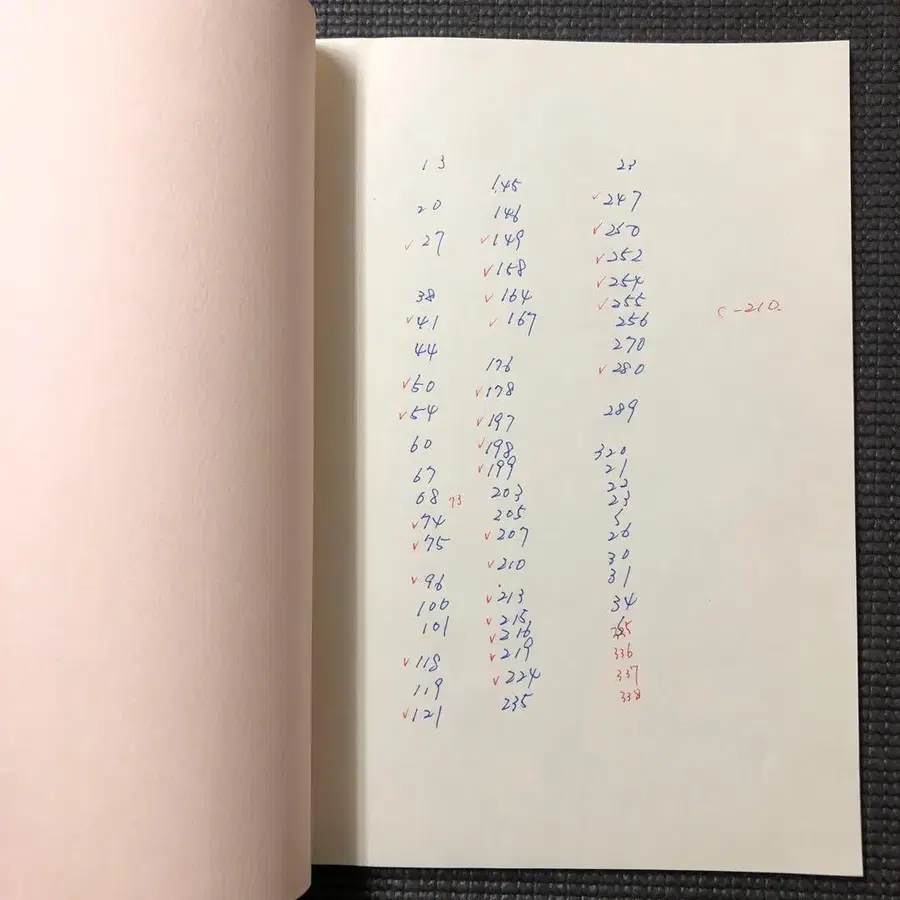 13
20
✓27
38
✓41
44
✓50
✓54
60
67
68 73
✓74
✓75
✓96
100
101
✓118
119
✓121
145
146
✓149
✓158
✓164
✓167
176
✓178
✓197
✓198
✓199
203
205
✓207
✓210
✓213
✓215
✓216
✓219
✓224
235
23
✓247
✓250
✓252
✓254
✓255
256
270
✓280
289
320
21
22
23
5
26
30
31
34
336
337
338
-210